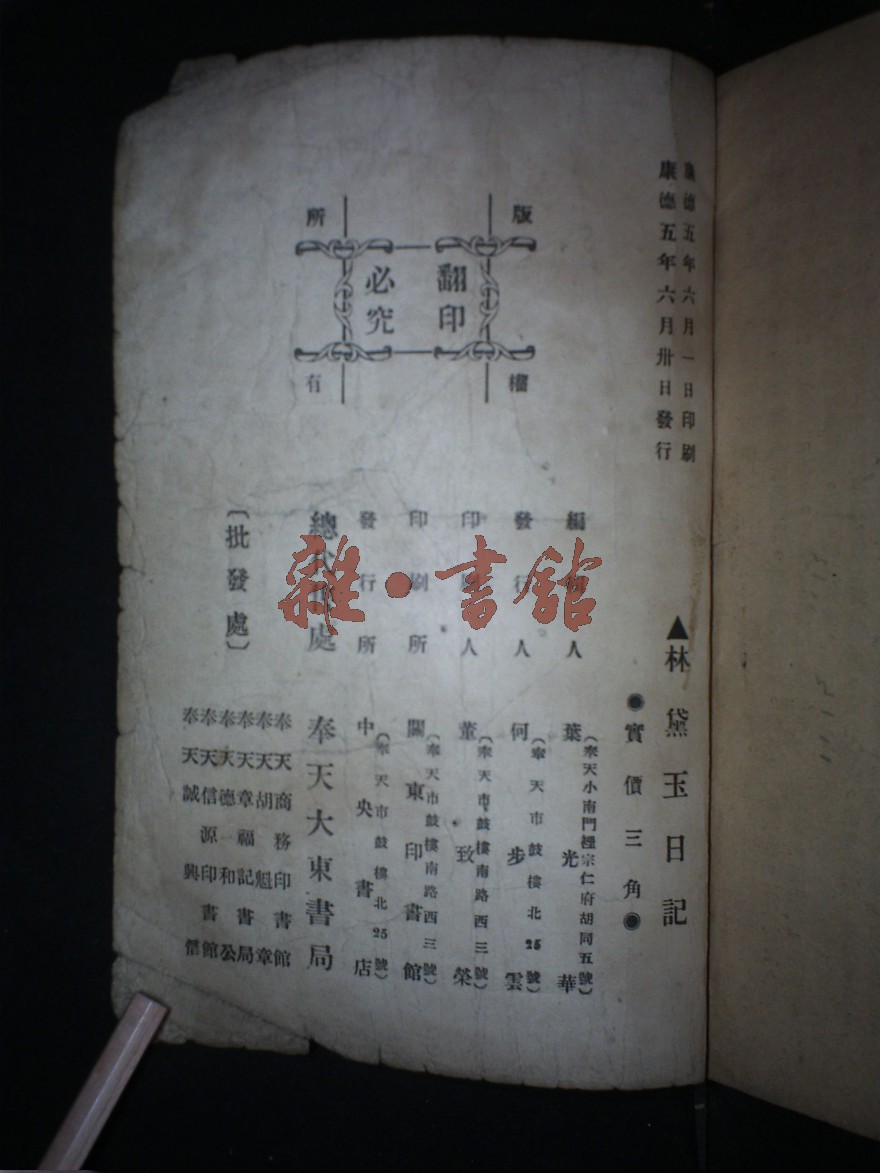 康德五年六月一日印刷
康德五年六月卅日發行
▲林黛玉日記
◉實價三角◉
版權所有
翻印必究
編 人 葉光華
(奉天小南門裡宗仁府胡同五號)
發行人 何步雲
(奉天市鼓樓北25號)
印 人 董致榮
(奉天市鼓樓南路西三號)
印刷所 關東印書館
(奉天市鼓樓南路西三號)
發行所 中央書店
(奉天市鼓樓北25號)
總 處 奉天大東書局
〔批發處〕
奉天商務印書館
奉天胡魁章
奉天章福記書局
奉天德一和公
奉天信源印書館
奉天誠興
雜·書館